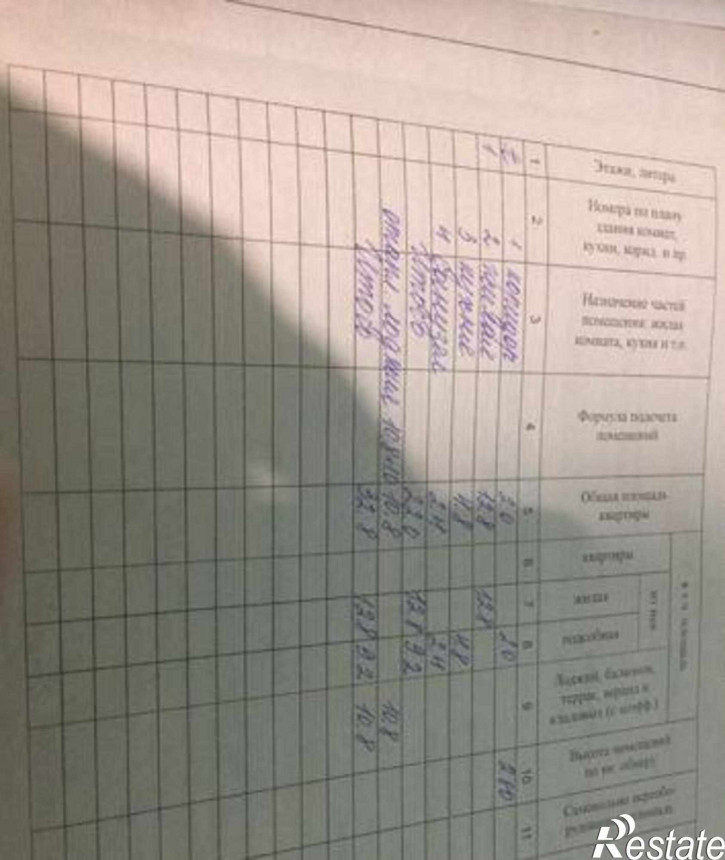 Этажи, литера
Номера по плану
здания комнат,
кухни, корид. и пр.
Назначение частей
помещения: жилая
комната, кухня и т.п.
Формула подсчета
помещений
Общая площадь
квартиры
в т.ч. площадь
квартиры
из нее
жилая
подсобная
Лоджий, балконов,
террас, веранд и
кладовых (с коэфф.)
Высота помещений
по вн. обмеру
Самовольно
1 2 3 4 5 6 7 8 9 10 11
1 коридор 2.0 2.0 2.70
1 2 жилая 12.8 12.8
3 кухня 4.8 4.8
4 санузел 2.4 2.4
Итого 22.0 12.8 9.2
лоджия 10.8×1.0 10.8 10.8
Итого 32.8 12.8 9.2 10.8
Restate